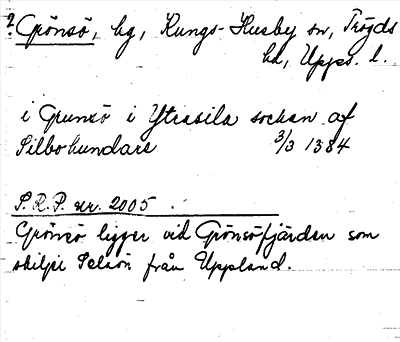 ? Grönsö, hg, Kungs-Husby sn, Trögds
hd, Upps. l.
i Grunsö i Ytrasila sockan af
Silbohundare 3/3 1384
S.R.P. nr. 2005
Grönsö ligger vid Grönsöfjärden som
skiljer Selaön från Uppland.